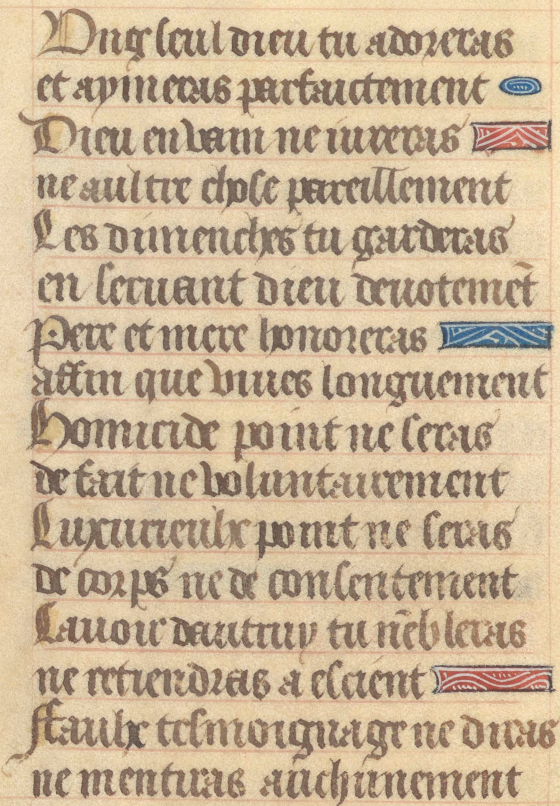 Ung seul dieu tu adoreras
et aymeras parfaictement
Dieu en vain ne iureras
ne aultre chose pareillement
Les dimenches tu garderas
en seruant dieu deuotemēt
Pere et mere honoreras
affin que viues longuement
Homicide point ne seras
de fait ne voluntairement
Luxurieulx point ne seras
de corps ne de consentement
Lauoir dautruy tu nēbleras
ne retiendras a escient
ffaulx tesmoignage ne diras
ne mentiras aūchunement